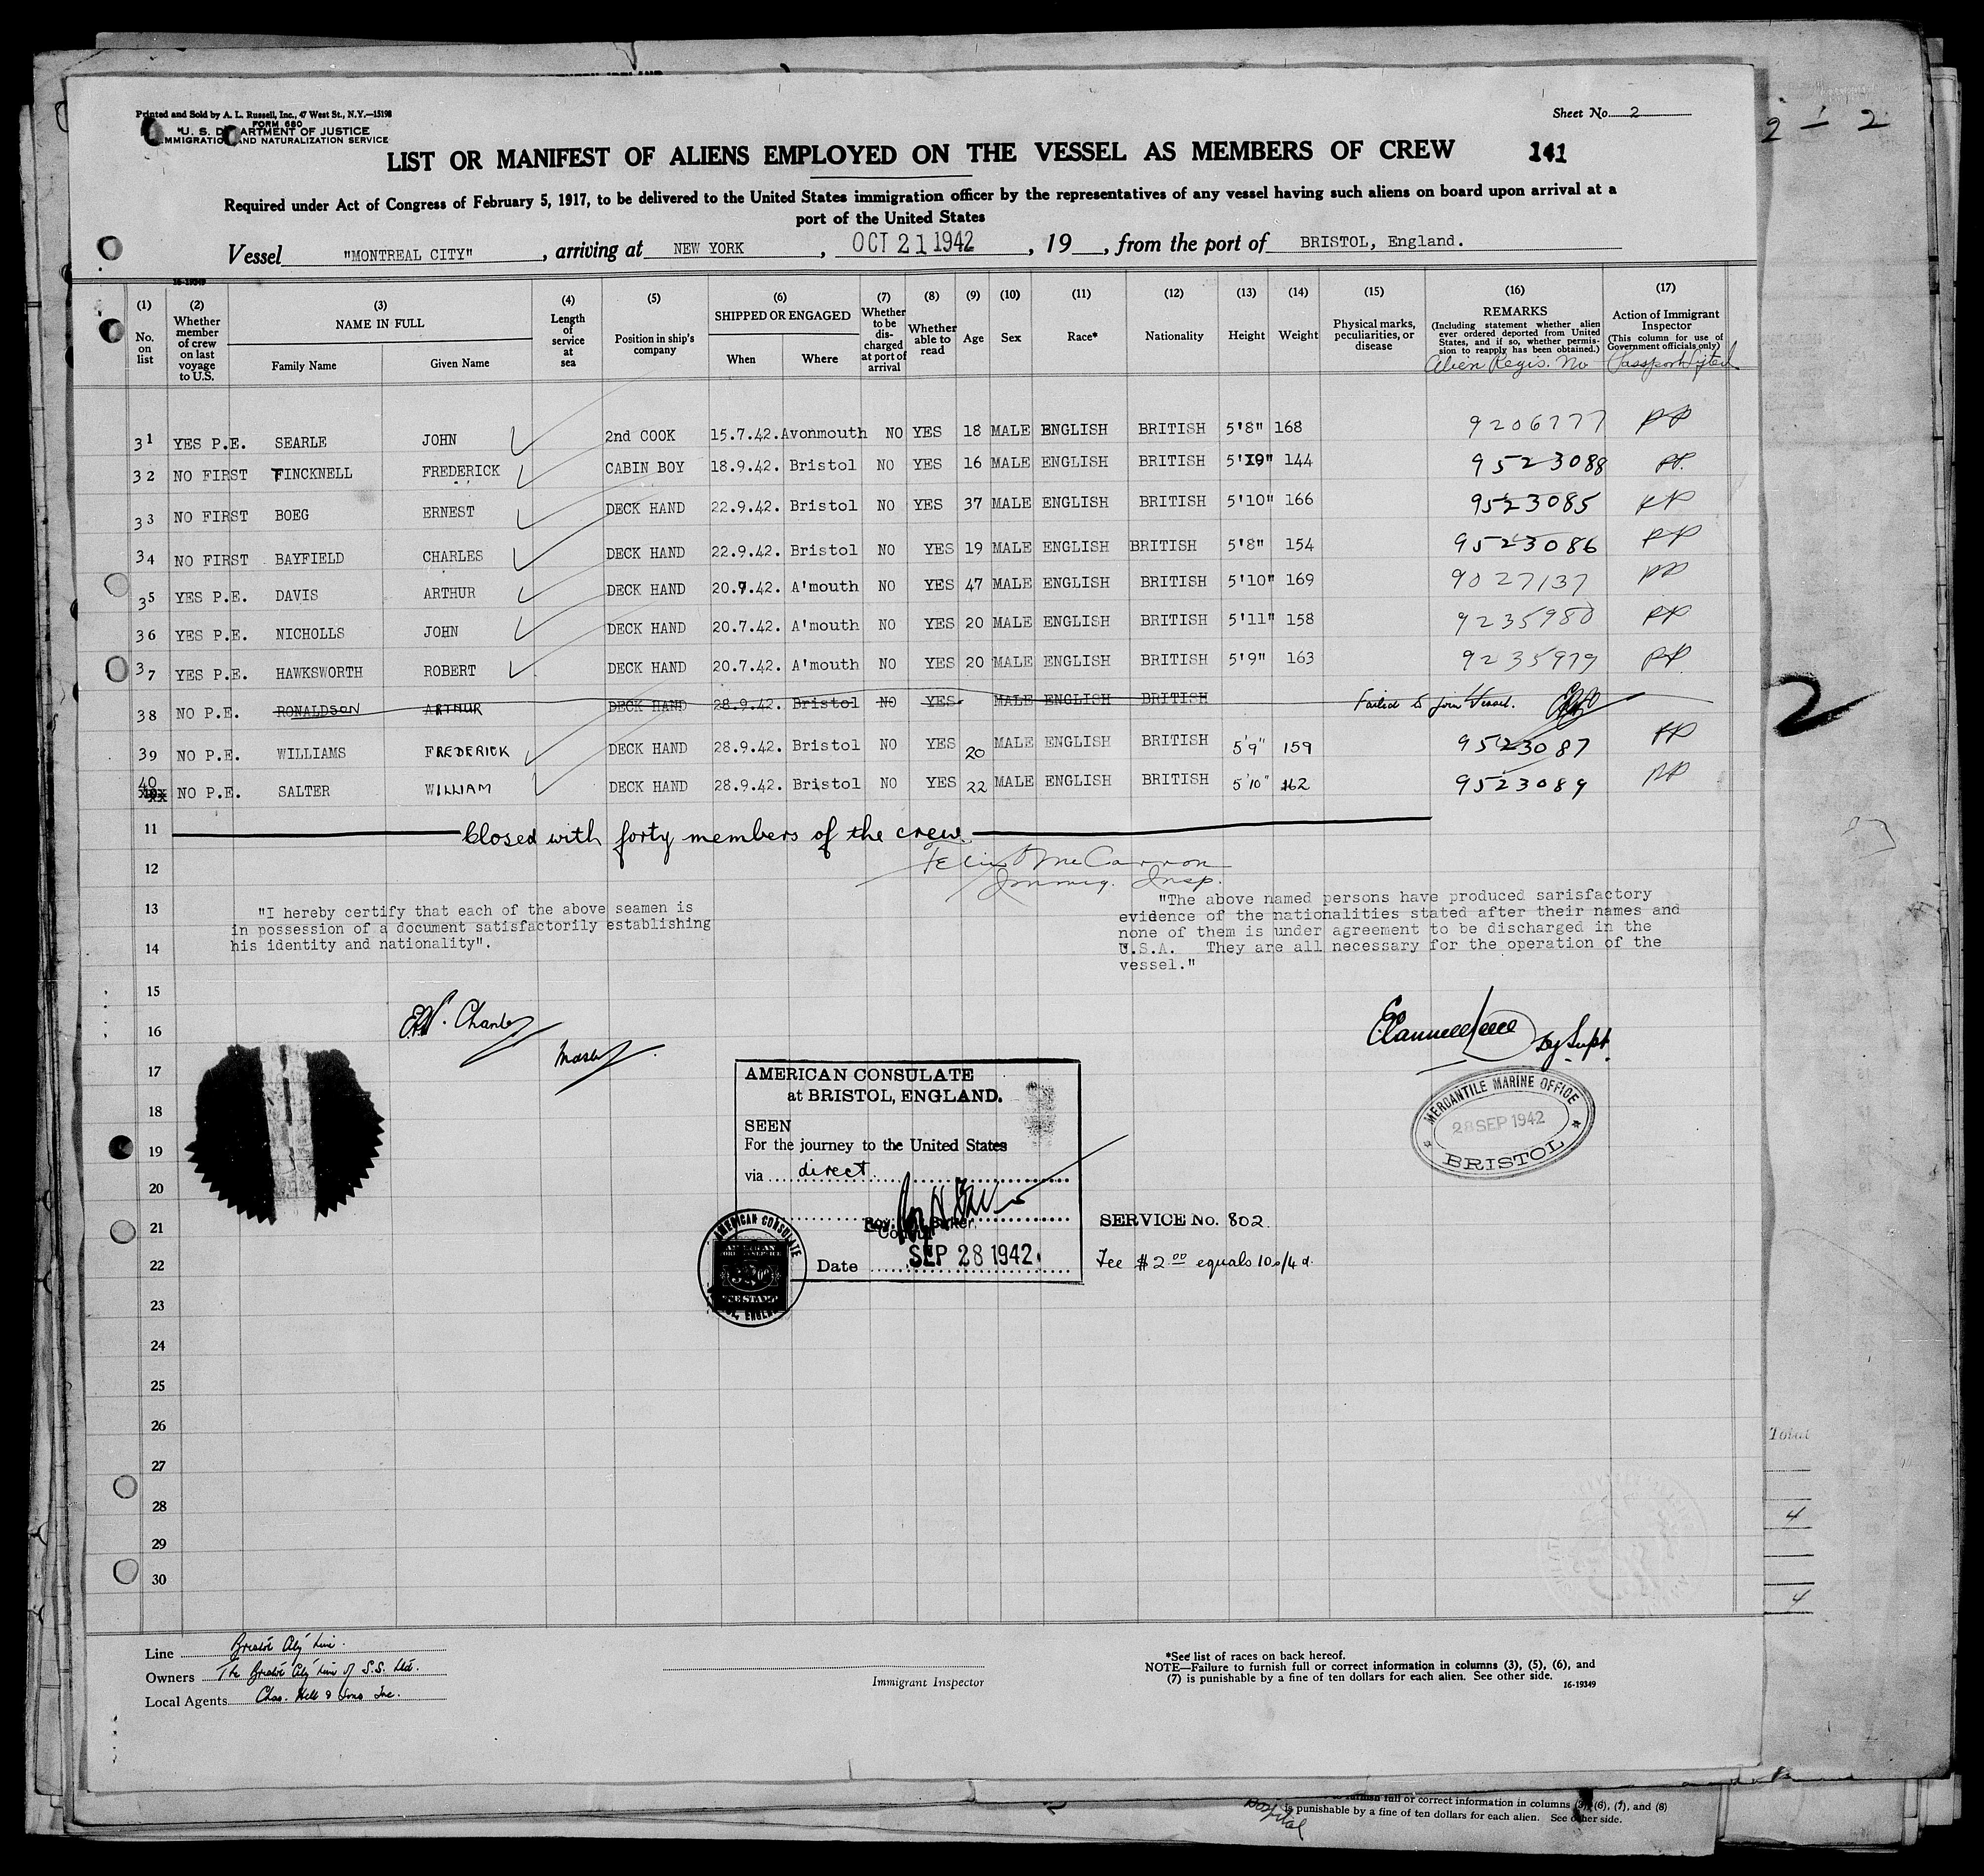 Printed and Sold by A. L. Russell, Inc., 47 West St., N.Y.—15198
FORM 680
U. S. DEPARTMENT OF JUSTICE
IMMIGRATION AND NATURALIZATION SERVICE
Sheet No. 2
LIST OR MANIFEST OF ALIENS EMPLOYED ON THE VESSEL AS MEMBERS OF CREW 141
Required under Act of Congress of February 5, 1917, to be delivered to the United States immigration officer by the representatives of any vessel having such aliens on board upon arrival at a
port of the United States
Vessel "MONTREAL CITY", arriving at NEW YORK, OCT 21 1942, 19, from the port of BRISTOL, England.
16-19349
(1) No. on list
(2) Whether member of crew on last voyage to U.S.
(3) NAME IN FULL
Family Name Given Name
(4) Length of service at sea
(5) Position in ship's company
(6) SHIPPED OR ENGAGED
When Where
(7) Whether to be discharged at port of arrival
(8) Whether able to read
(9) Age
(10) Sex
(11) Race*
(12) Nationality
(13) Height
(14) Weight
(15) Physical marks, peculiarities, or disease
(16) REMARKS
(Including statement whether alien ever ordered deported from United States, and if so, whether permission to reapply has been obtained.)
Alien Regis. No
(17) Action of Immigrant Inspector
(This column for use of Government officials only)
Passport Lifted
31 YES P.E. SEARLE JOHN 2nd COOK 15.7.42. Avonmouth NO YES 18 MALE ENGLISH BRITISH 5'8" 168 9206777 PP
32 NO FIRST TINCKNELL FREDERICK CABIN BOY 18.9.42. Bristol NO YES 16 MALE ENGLISH BRITISH 5'10" 144 9523088 PP.
33 NO FIRST BOEG ERNEST DECK HAND 22.9.42. Bristol NO YES 37 MALE ENGLISH BRITISH 5'10" 166 9523085 PP
34 NO FIRST BAYFIELD CHARLES DECK HAND 22.9.42. Bristol NO YES 19 MALE ENGLISH BRITISH 5'8" 154 9523086 PP
35 YES P.E. DAVIS ARTHUR DECK HAND 20.7.42. A'mouth NO YES 47 MALE ENGLISH BRITISH 5'10" 169 9027137 PP
36 YES P.E. NICHOLLS JOHN DECK HAND 20.7.42. A'mouth NO YES 20 MALE ENGLISH BRITISH 5'11" 158 9235980 PP
37 YES P.E. HAWKSWORTH ROBERT DECK HAND 20.7.42. A'mouth NO YES 20 MALE ENGLISH BRITISH 5'9" 163 9235979 PP
38 NO P.E. RONALDSON ARTHUR DECK HAND 28.9.42. Bristol NO YES MALE ENGLISH BRITISH Failed to join Vessel.
39 NO P.E. WILLIAMS FREDERICK DECK HAND 28.9.42. Bristol NO YES 20 MALE ENGLISH BRITISH 5'9" 159 9523087 PP
40 NO P.E. SALTER WILLIAM DECK HAND 28.9.42. Bristol NO YES 22 MALE ENGLISH BRITISH 5'10" 162 9523089 PP
11 Closed with forty members of the crew.
12 Felix McCarron
Immig. Insp.
13
14
"I hereby certify that each of the above seamen is
in possession of a document satisfactorily establishing
his identity and nationality".
"The above named persons have produced sarisfactory
evidence of the nationalities stated after their names and
none of them is under agreement to be discharged in the
U.S.A. They are all necessary for the operation of the
vessel."
15
16
Master
Dy Supt.
17
18
19
20
21
22
23
24
25
26
27
28
29
30
MERCANTILE MARINE OFFICE
28 SEP 1942
BRISTOL
AMERICAN CONSULATE
at BRISTOL, ENGLAND.
SEEN
For the journey to the United States
via direct.
Date SEP 28 1942
AMERICAN CONSULATE
SERVICE No. 802
Fee $2.00 equals 10s/4d.
Line Bristol City Line.
Owners The Bristol City Line of S.S. Ltd.
Local Agents Chas. Hill & Sons Inc.
Immigrant Inspector
*See list of races on back hereof.
NOTE—Failure to furnish full or correct information in columns (3), (5), (6), and
(7) is punishable by a fine of ten dollars for each alien. See other side.
16-19349
2 – 2
2
Total
4
4
full or correct information in columns (3), (6), (7), and (8)
is punishable by a fine of ten dollars for each alien. See other side.
Hospital